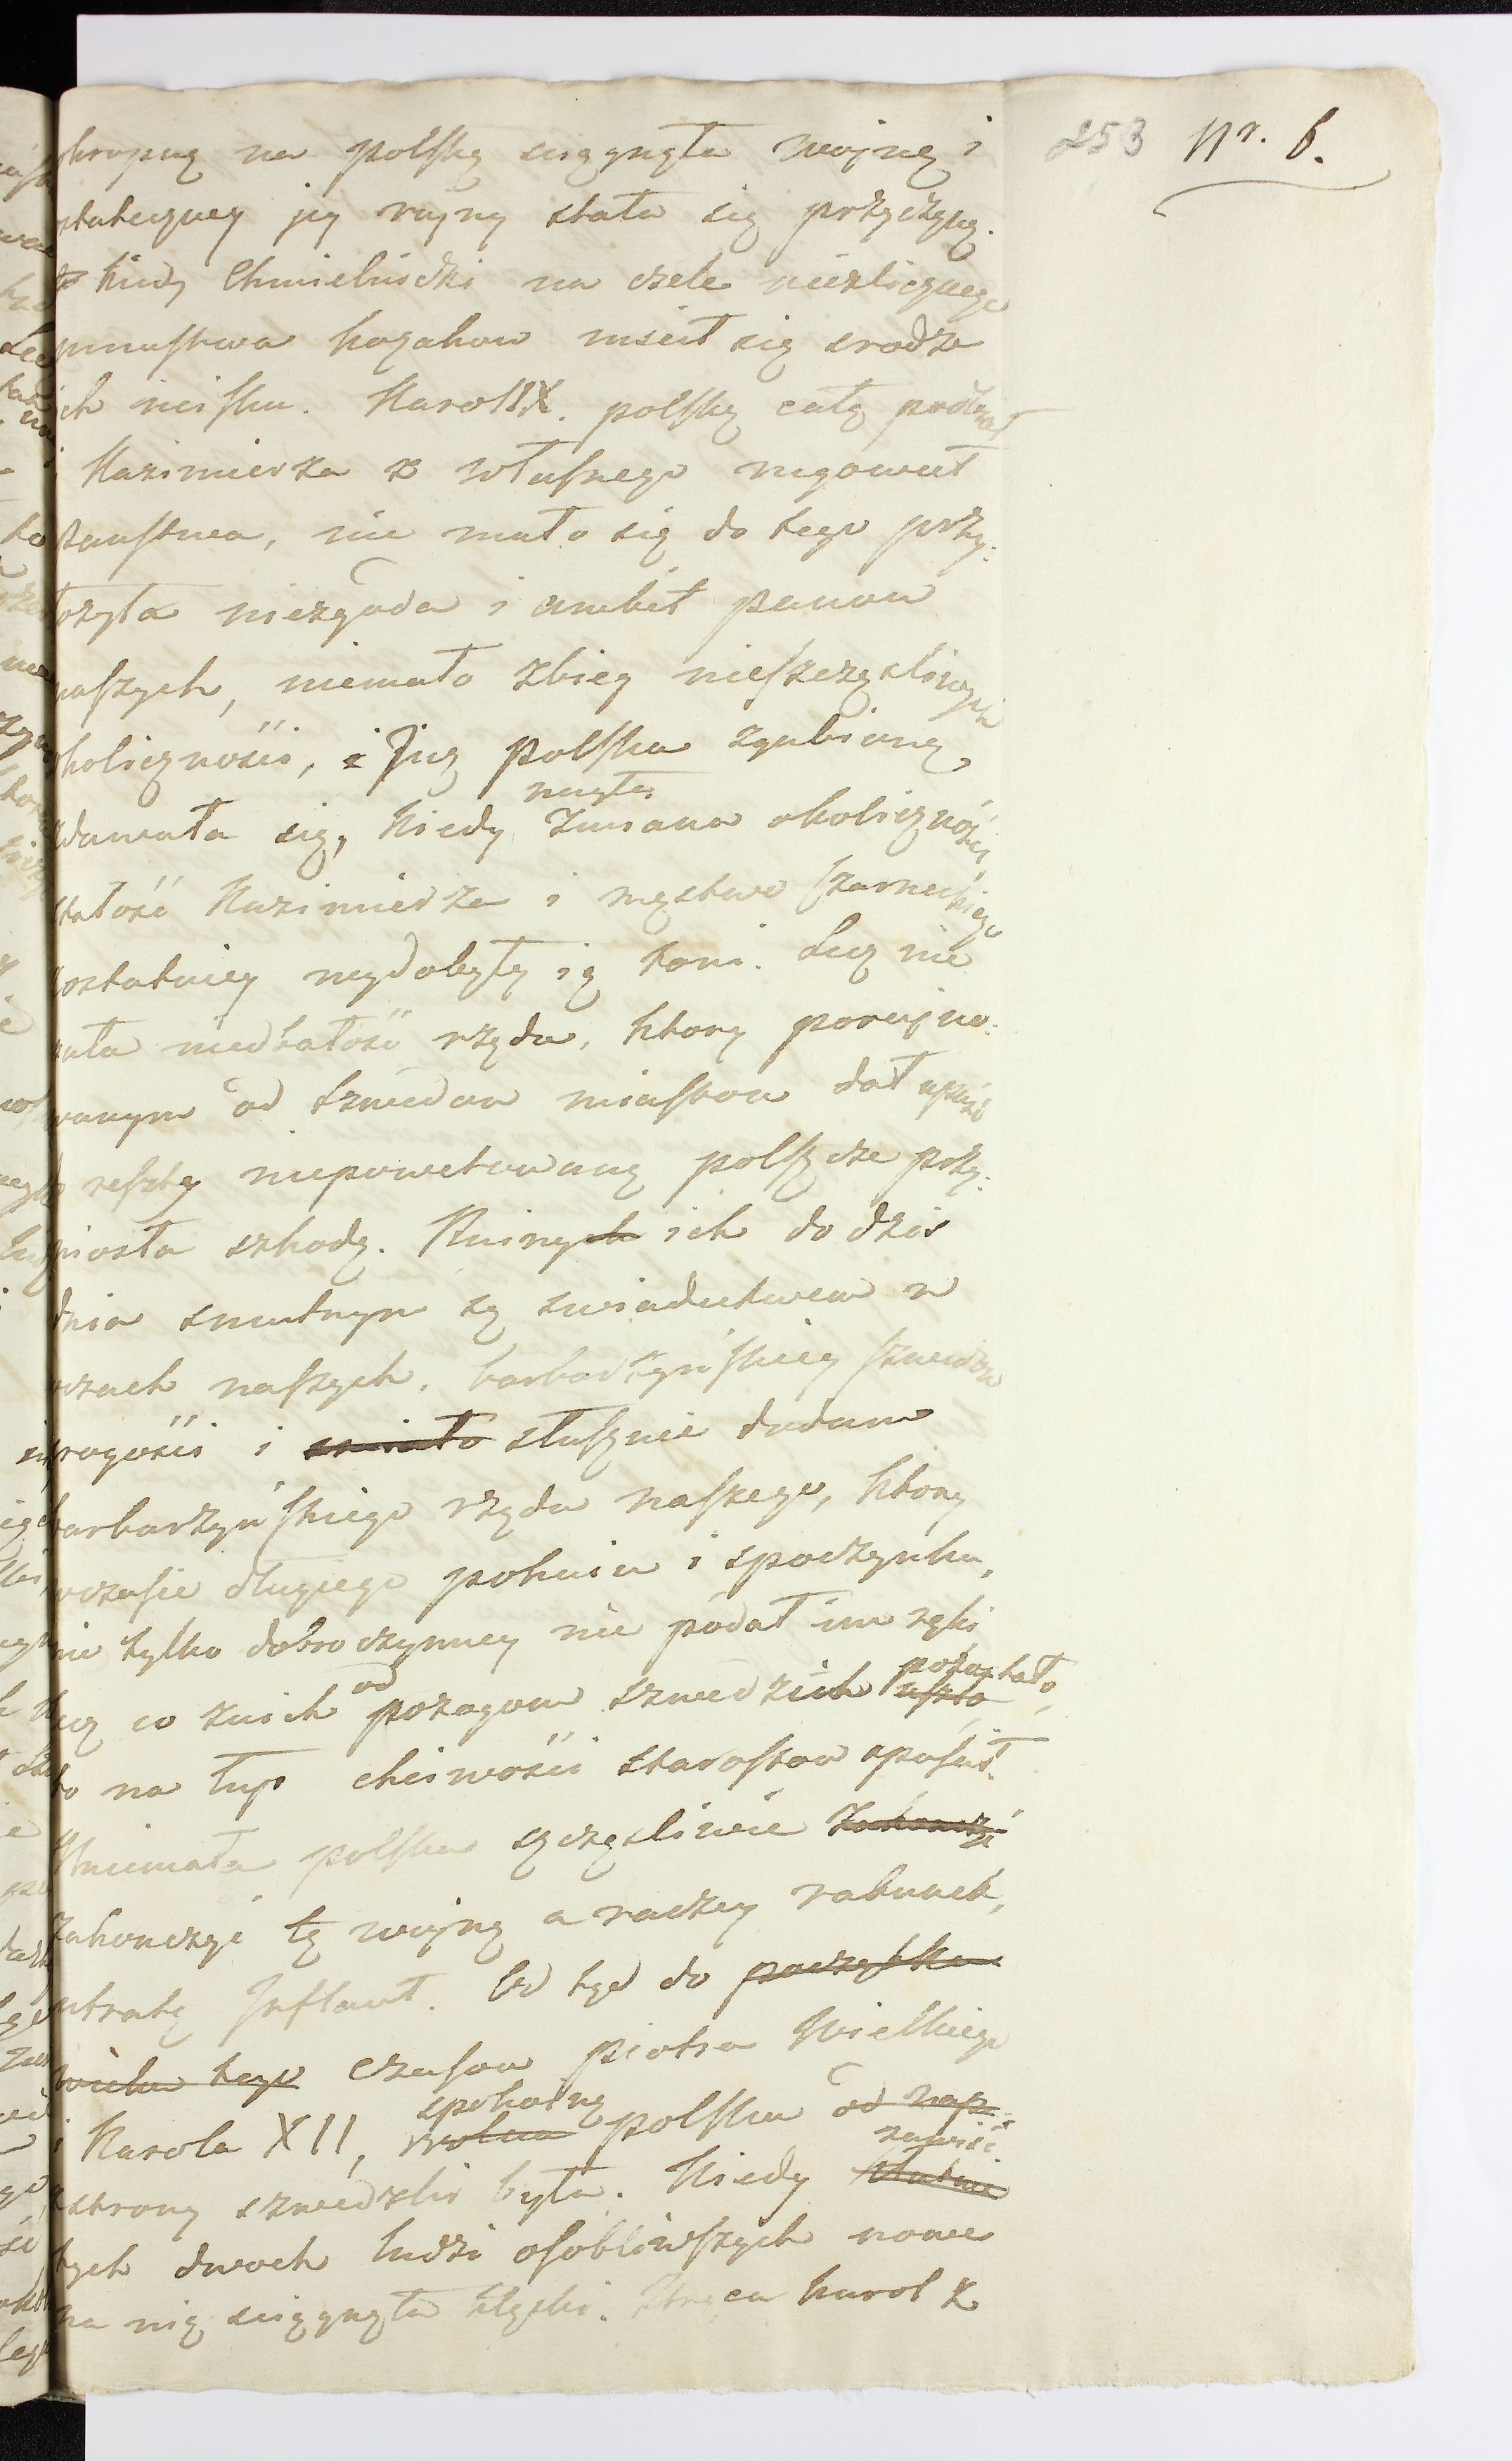 253 Nr. 6.
okropną na polskę sciągnęła wojnę i
ostateczney jey ruiny stała się przyczyną.
Kiedy Chmielnicki na czele niezlicznego
mnustwa kozakow mscił się srodze
ich ucisku. Karol IX. polskę całą podbiał
i Kazimierza z własnego wygowuł
panstwa, nie mało się do tego przy:
łożyła niezgoda i ambit panow
naszych, niemało zbieg nieszczęsliwych
okoliczności, i Już polska zgubioną
zdawała się, kiedy nagła zmiana okoliczności,
stałość Kazimierza i męstwo Czarneckiego
z ostatniey wydobyły ią toni. Lecz nie
cała niedbałość rządu, ktory porujno:
wanym od szwedow miastom dał upaść
do reszty niepowetowaną polszcze przy:
niosła szkodę. Ruinych ich do dzis
dnia smutnym są swiadectwem w
oczach naszych, barbarzyńskiey szwedow
srogości i smiało słusznie dodam
barbarzyńskiego rządu naszego, ktory
w czasie długiego pokoiu i spoczynku,
nie tylko dobroczynney nie podał im ręki
lecz co znich od pożogow szwedzkich uszło pozostało,
to na łup chciwości starostow opuścił.
Umiemała polska szczęsliwie zakonczyć
zakonczyć tę wojnę a raczey rabunek,
utratą Inflant. Od tąd do początku
wieku tego czasow piotra Wielkiego
i Karola XII, wolna spokoyną polska od nap:
z strony szwedzkiey była. Kiedy kłutnie zawiść
tych dwoch ludzi osobliwszych nowe
na nią sciągnęła klęski. Zbrzca karol z